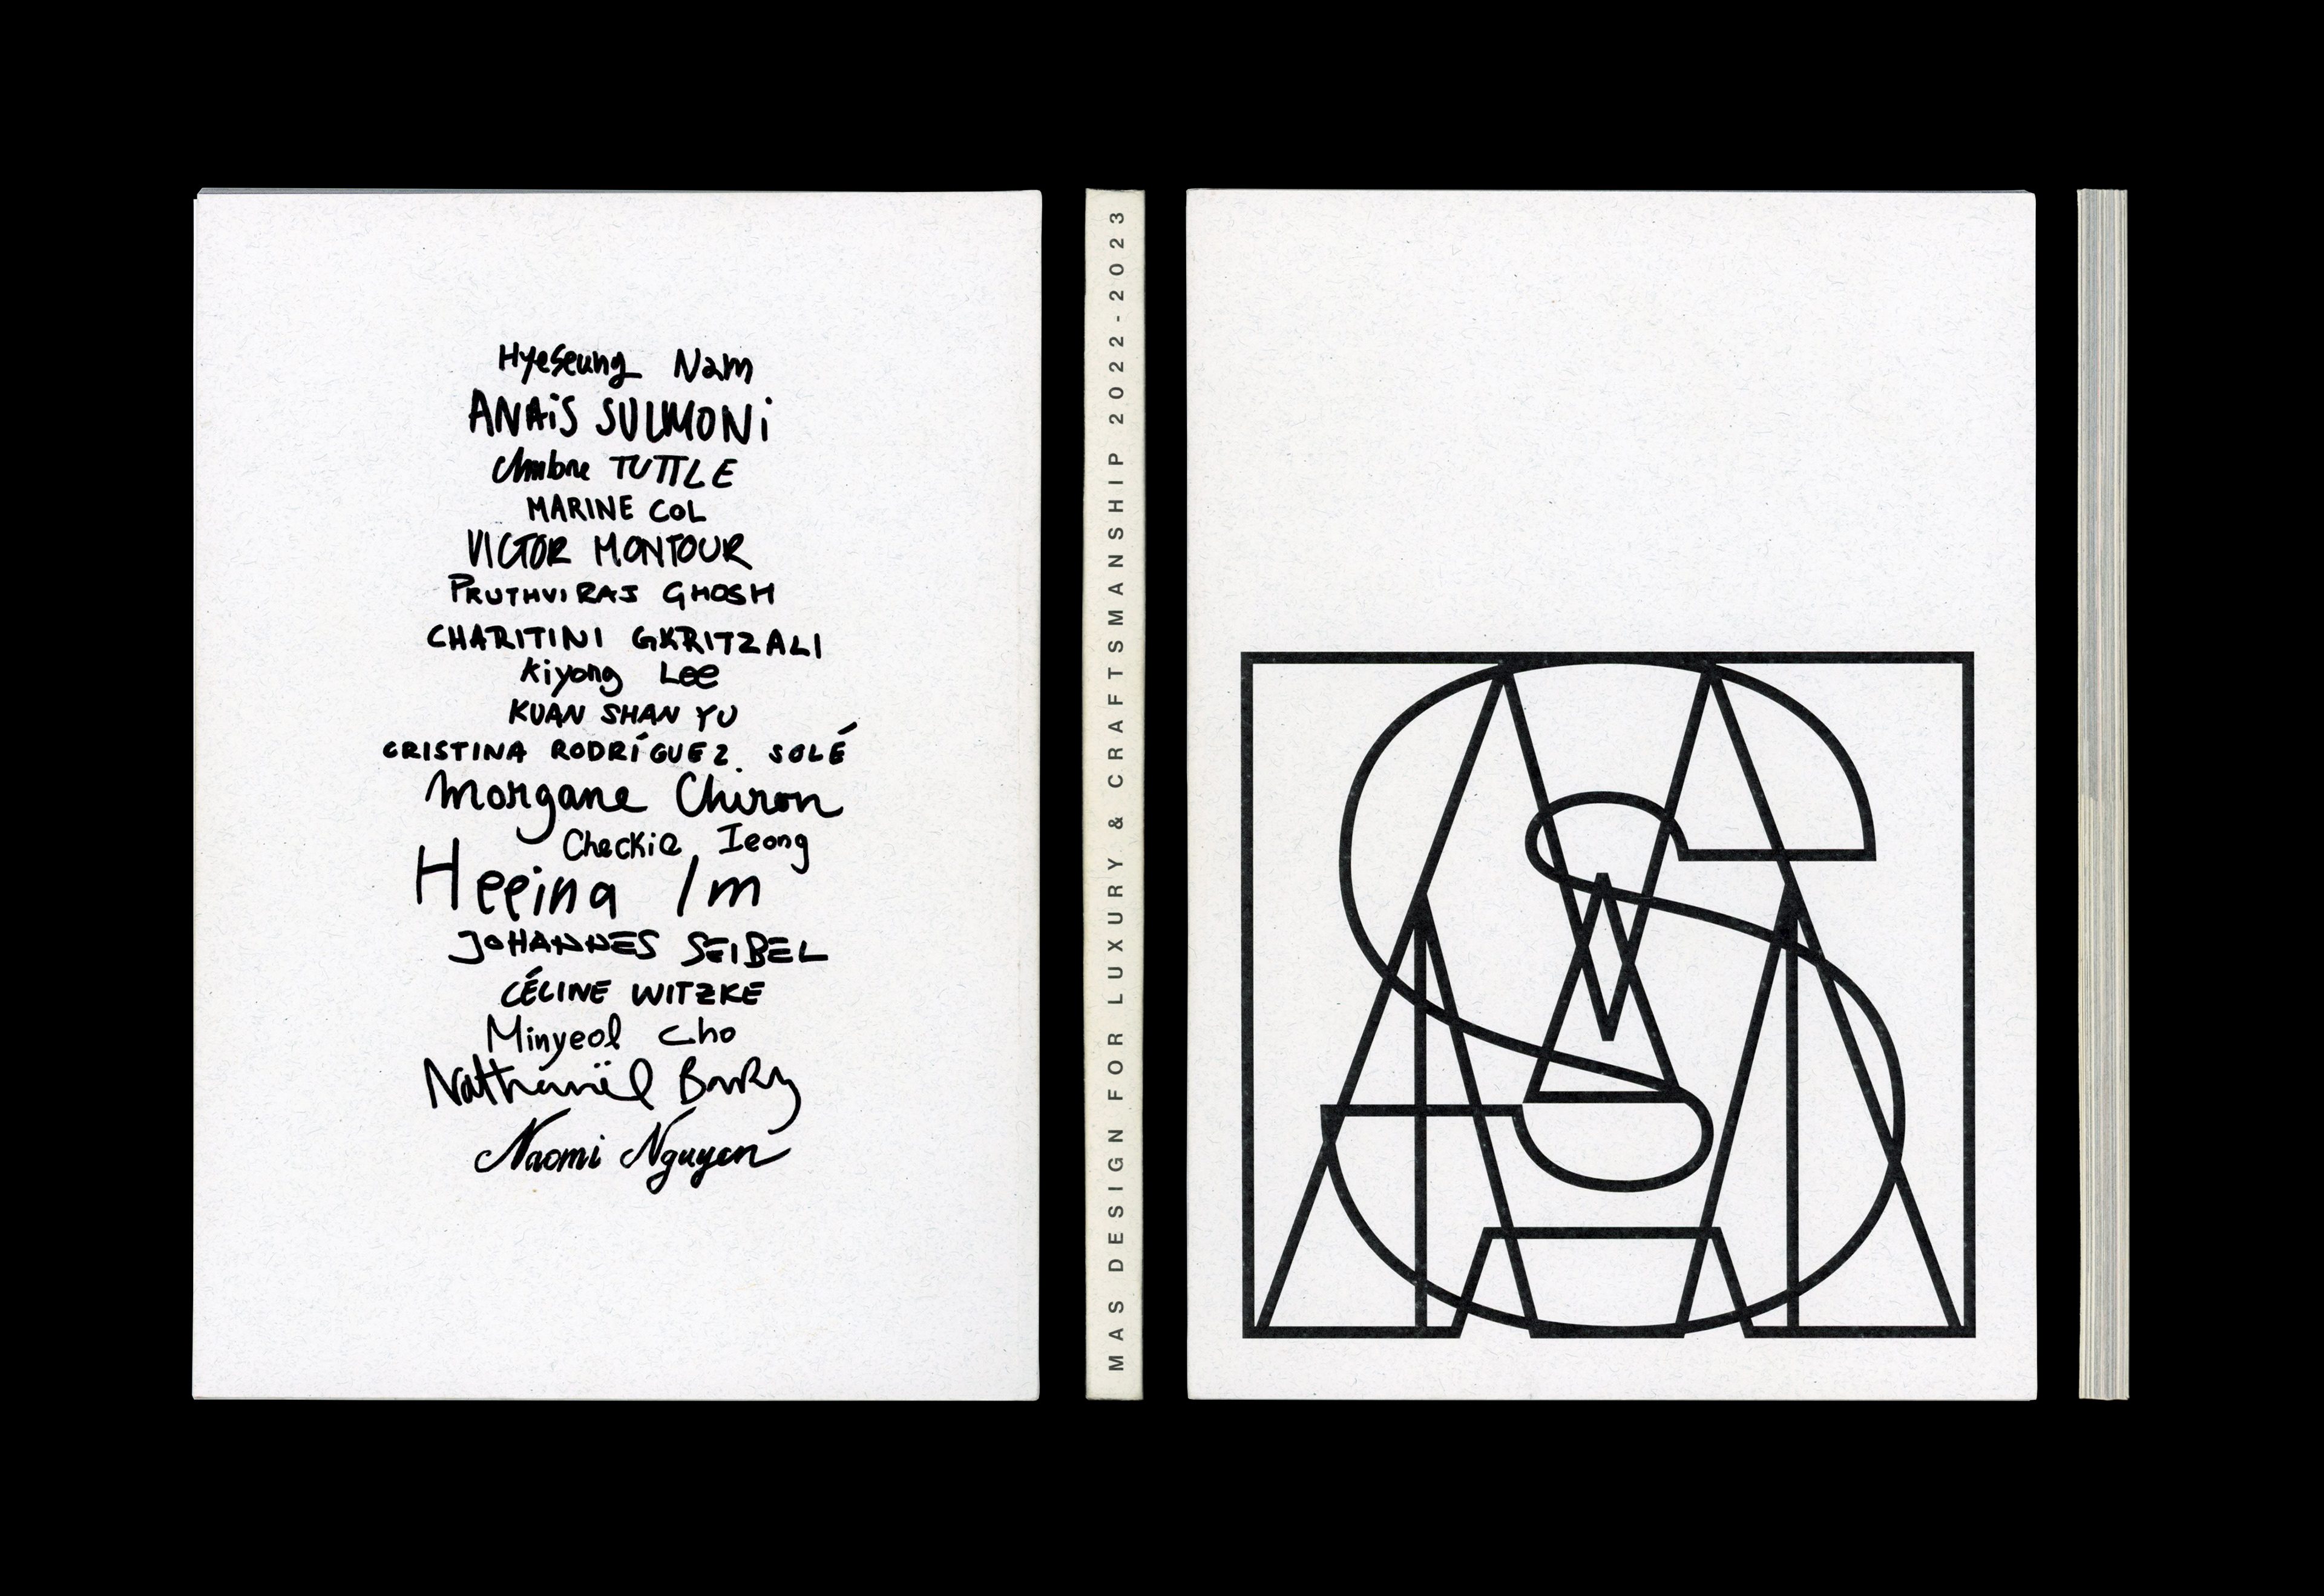 Hyeseung Nam
ANAiS SULMONi
Ambre TUTTLE
MARINE COL
VICTOR MONTOUR
PRUTHVIRAJ GHOSH
CHARITINI GKRITZALI
Kiyong Lee
KUAN SHAN YU
CRISTINA RODRÍGUEZ SOLÉ
Morgane Chiron
Checkie Ieong
Heejna Im
JOHANNES SEIBEL
CÉLINE WITZKE
Minyeol Cho
Nathanaël
Naomi Nguyen
MAS DESIGN FOR LUXURY & CRAFTSMANSHIP 2022-2023
MAS